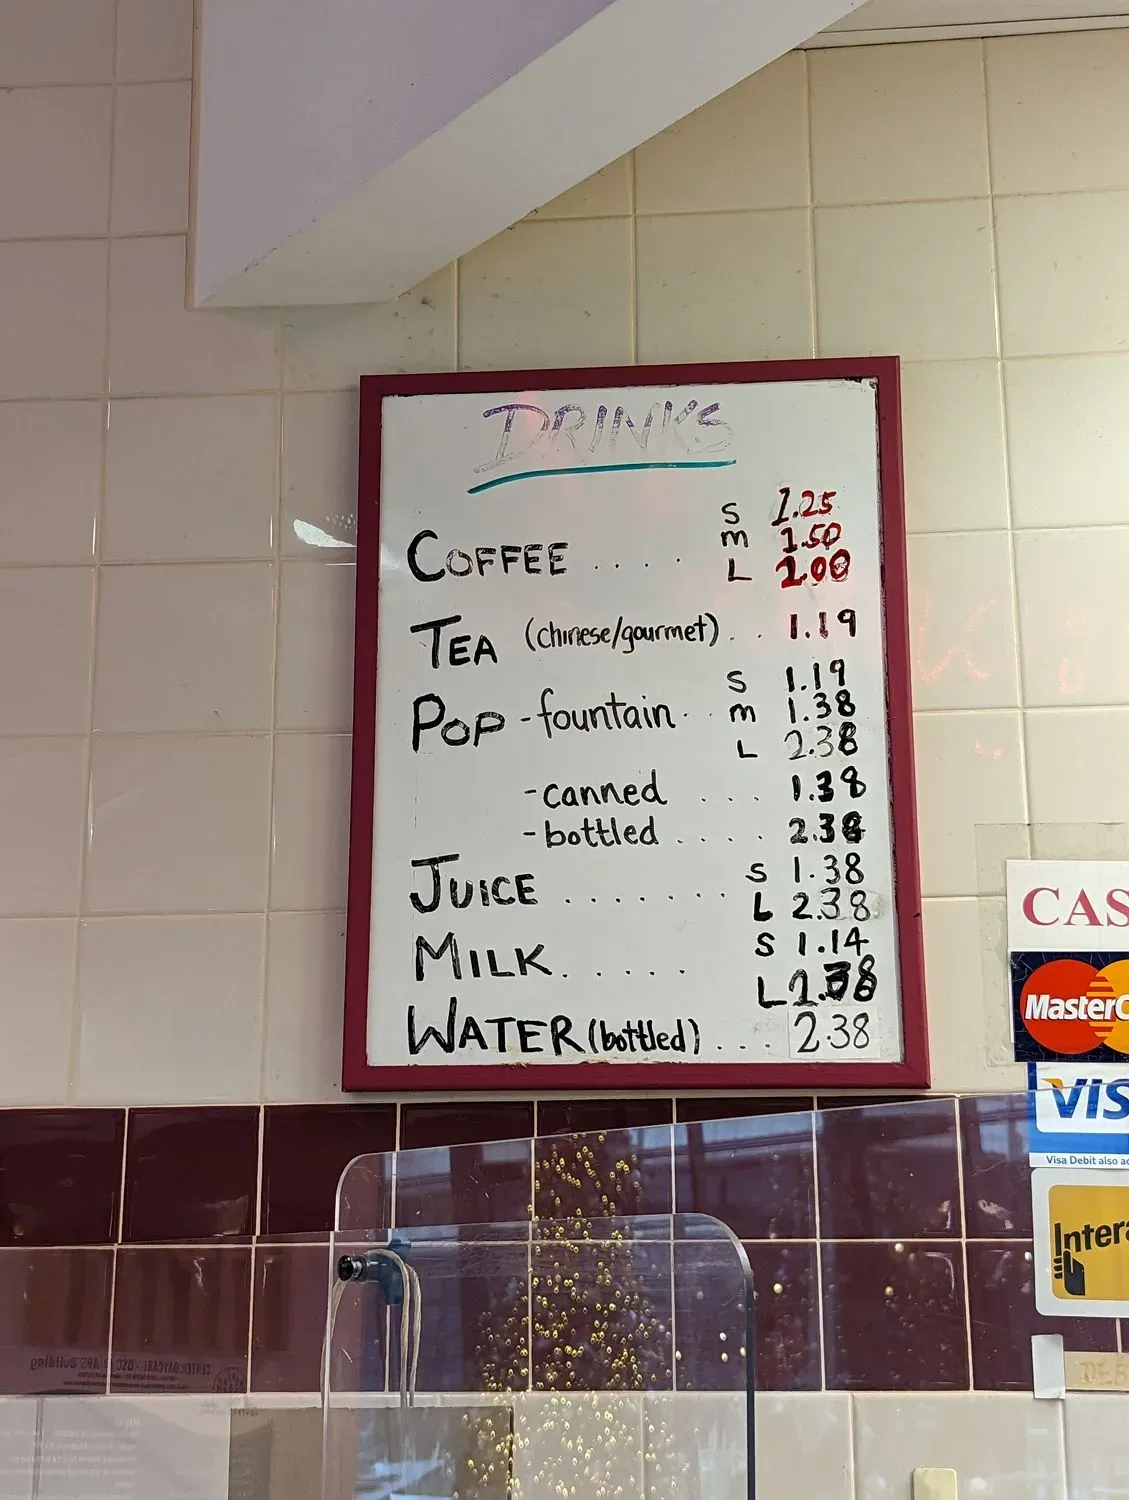 DRINKS
S 1.25
COFFEE .... M 1.50
L 2.00
TEA (chinese/gourmet) .. 1.19
S 1.19
POP - fountain .. M 1.38
L 2.38
- canned ... 1.38
- bottled .... 2.38
JUICE ....... S 1.38
L 2.38
MILK ...... S 1.14
L 2.38
WATER (bottled) ... 2.38
CAS
MasterC
VIS
Visa Debit also ac
Intera